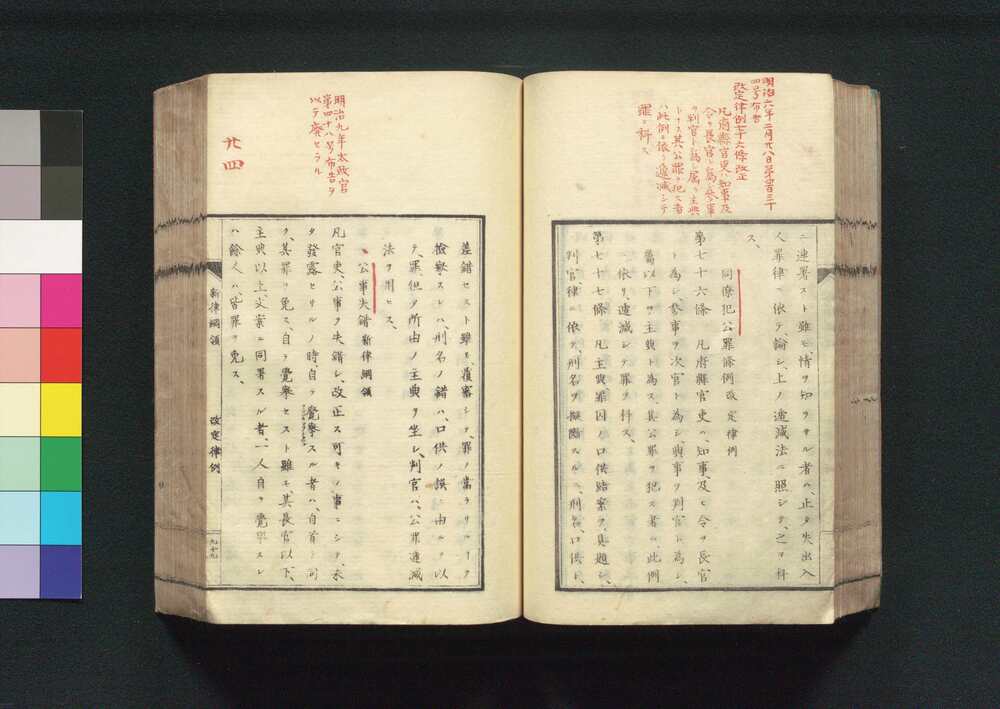 明治六年二月廿八日第四百三十
四号布告
改定律例七十六條改正
凡府縣官吏ハ知事及
令ヲ長官ト爲シ參事
ヲ判官ト爲シ屬ヲ主典
トナス其公罪ヲ犯ス者
ハ此例ニ依リ遞減シテ
罪ヲ科ス
ニ連署スト雖モ情ヲ知ラサル者ハ、止タ失出入
人罪律ニ依テ論シ、上ノ遞減法ニ照シテ、之ヲ科
ス、
同僚犯公罪條例 改定律例
第七十六條 凡府縣官吏ハ、知事及ヒ令ヲ長官
ト為シ、參事ヲ次官ト為シ、典事ヲ判官ト為シ、
屬以下ヲ主典ト為ス、其公罪ヲ犯ス者ハ、此例
ニ依リ、遞減シテ罪ヲ科ス、
第七十七條 凡主典罪囚ノ口供結案ヲ具題シ、
判官、律ニ依テ、刑名ヲ擬斷スルニ、刑名、口供ト、
明治九年太政官
第四十八号布告ヲ
以テ廢セラル
廿四
差錯セスト雖モ、覆審シテ、罪ノ當ラサルヿヲ
檢擧スレハ、刑名ノ錯ハ、口供ノ誤ニ由ルヲ以
テ、罪、但タ所由ノ主典ヲ坐シ、判官ハ、公罪遞減
法ヲ用ヒス、
公事失錯 新律綱領
凡官吏、公事ヲ失錯シ、改正ス可キノ事ニシテ、未
タ發露セサルノ時、自ラ覺擧スル者ハ、自首ト同
ク、其罪ヲ免ス、自ラ覺擧セスト雖モ、其長官以下、
主典以上、文案ニ同署スル者、一人自ラ覺擧スレ
ハ、餘人ハ、皆罪ヲ免ス、
新律綱領
改定律例
九十九